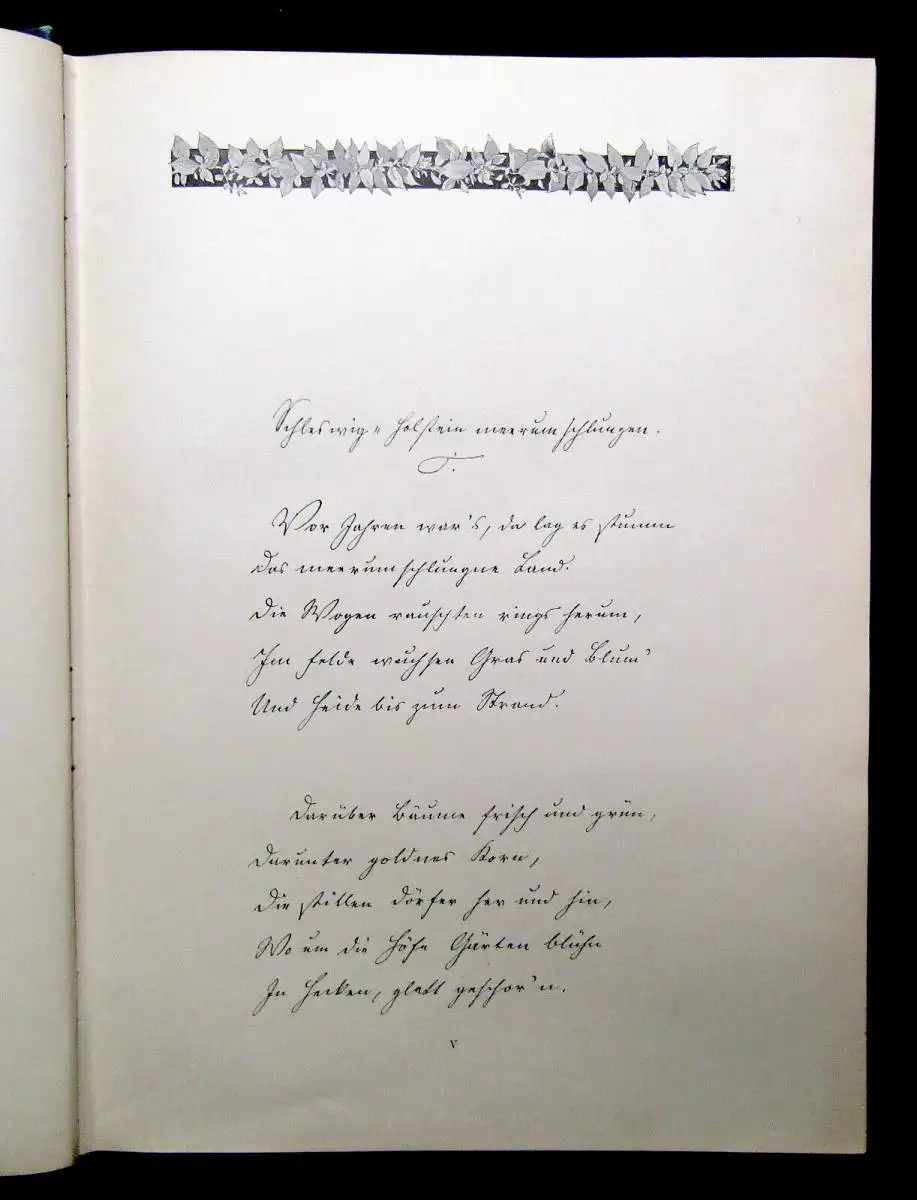 Schleswig=Holstein meerumschlungen.
I.
Vor Jahren war's, da lag es stumm
Das meerumschlungne Land.
Die Wogen rauschten rings herum,
Im Felde wuchsen Gras und Blum'
Und Heide bis zum Strand.
Darüber Bäume frisch und grün,
Darunter goldnes Korn,
Die stillen Dörfer her und hin,
Wo um die Höfe Gärten blühn
In Hecken, glatt geschor'n.
V